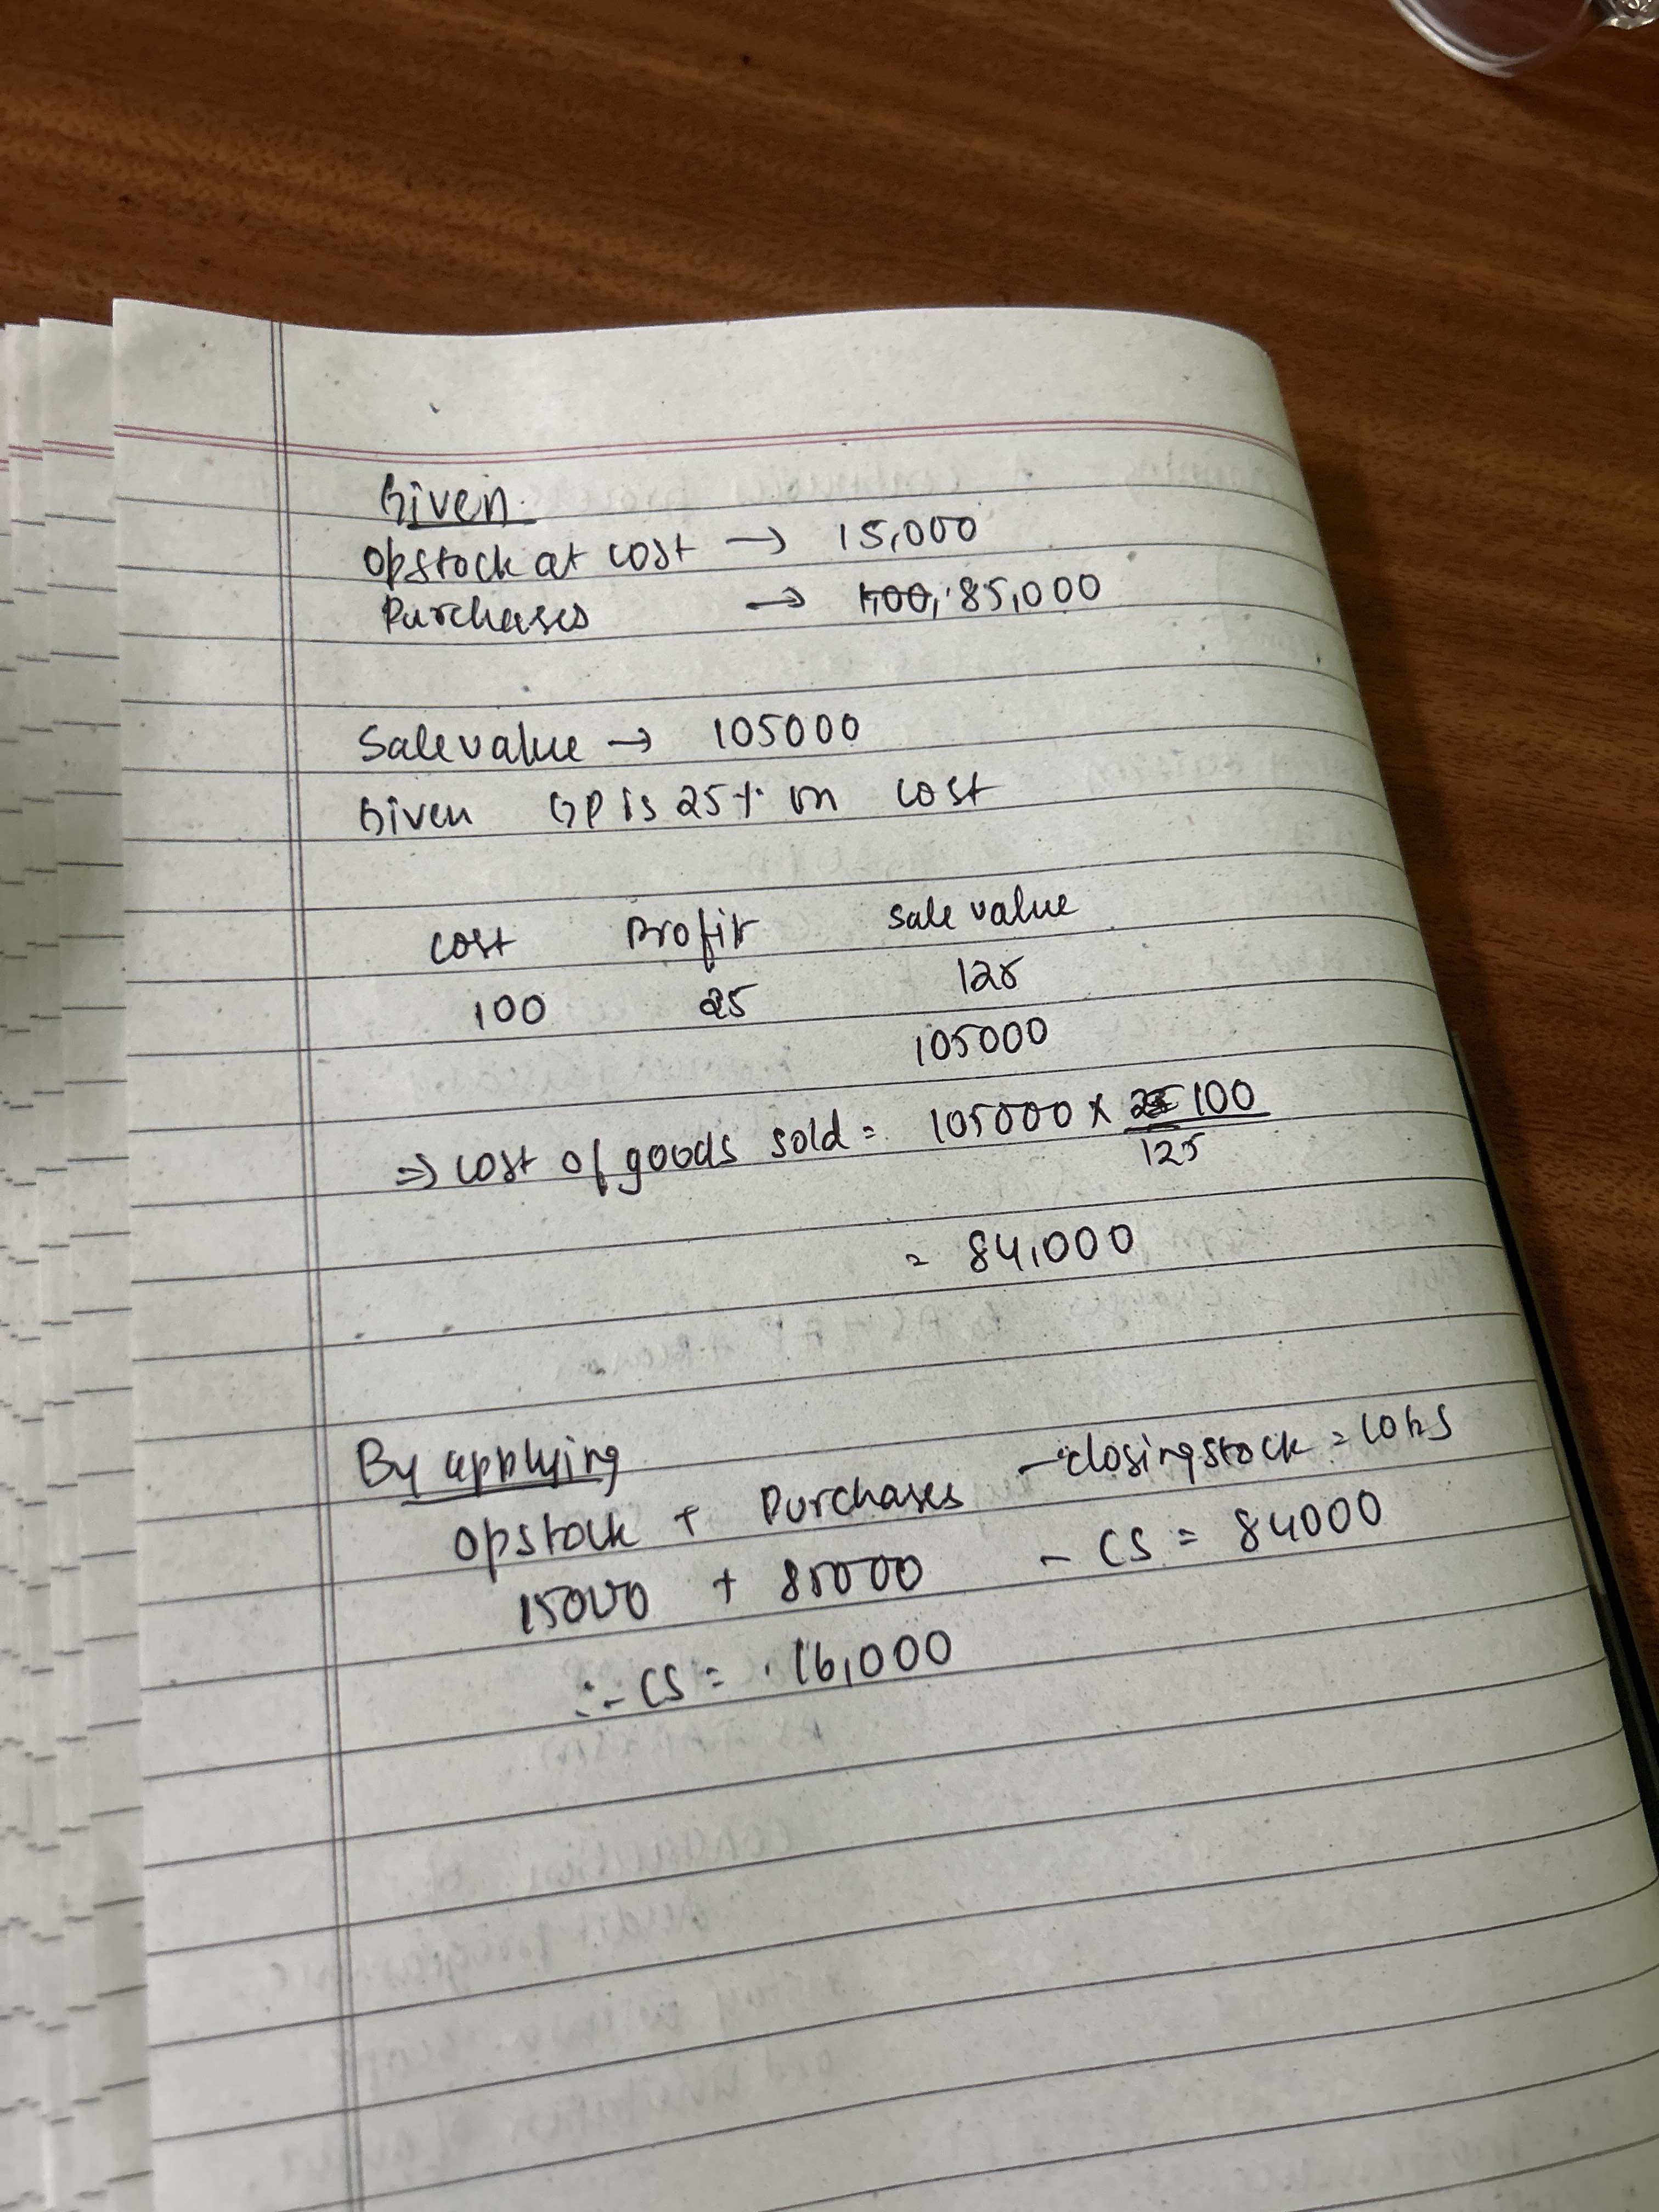 Given
Opstock at cost → 15,000
Purchases → 100, 85,000
Sale value → 105000
Given GP is 25% on cost
Cost Profit Sale value
100 25 125
105000
⇒ Cost of goods sold = 105000 × 25 100
125
= 84,000
By applying
Opstock + Purchases - closing stock = COGS
15000 + 85000 - CS = 84000
∴ - CS = 16,000